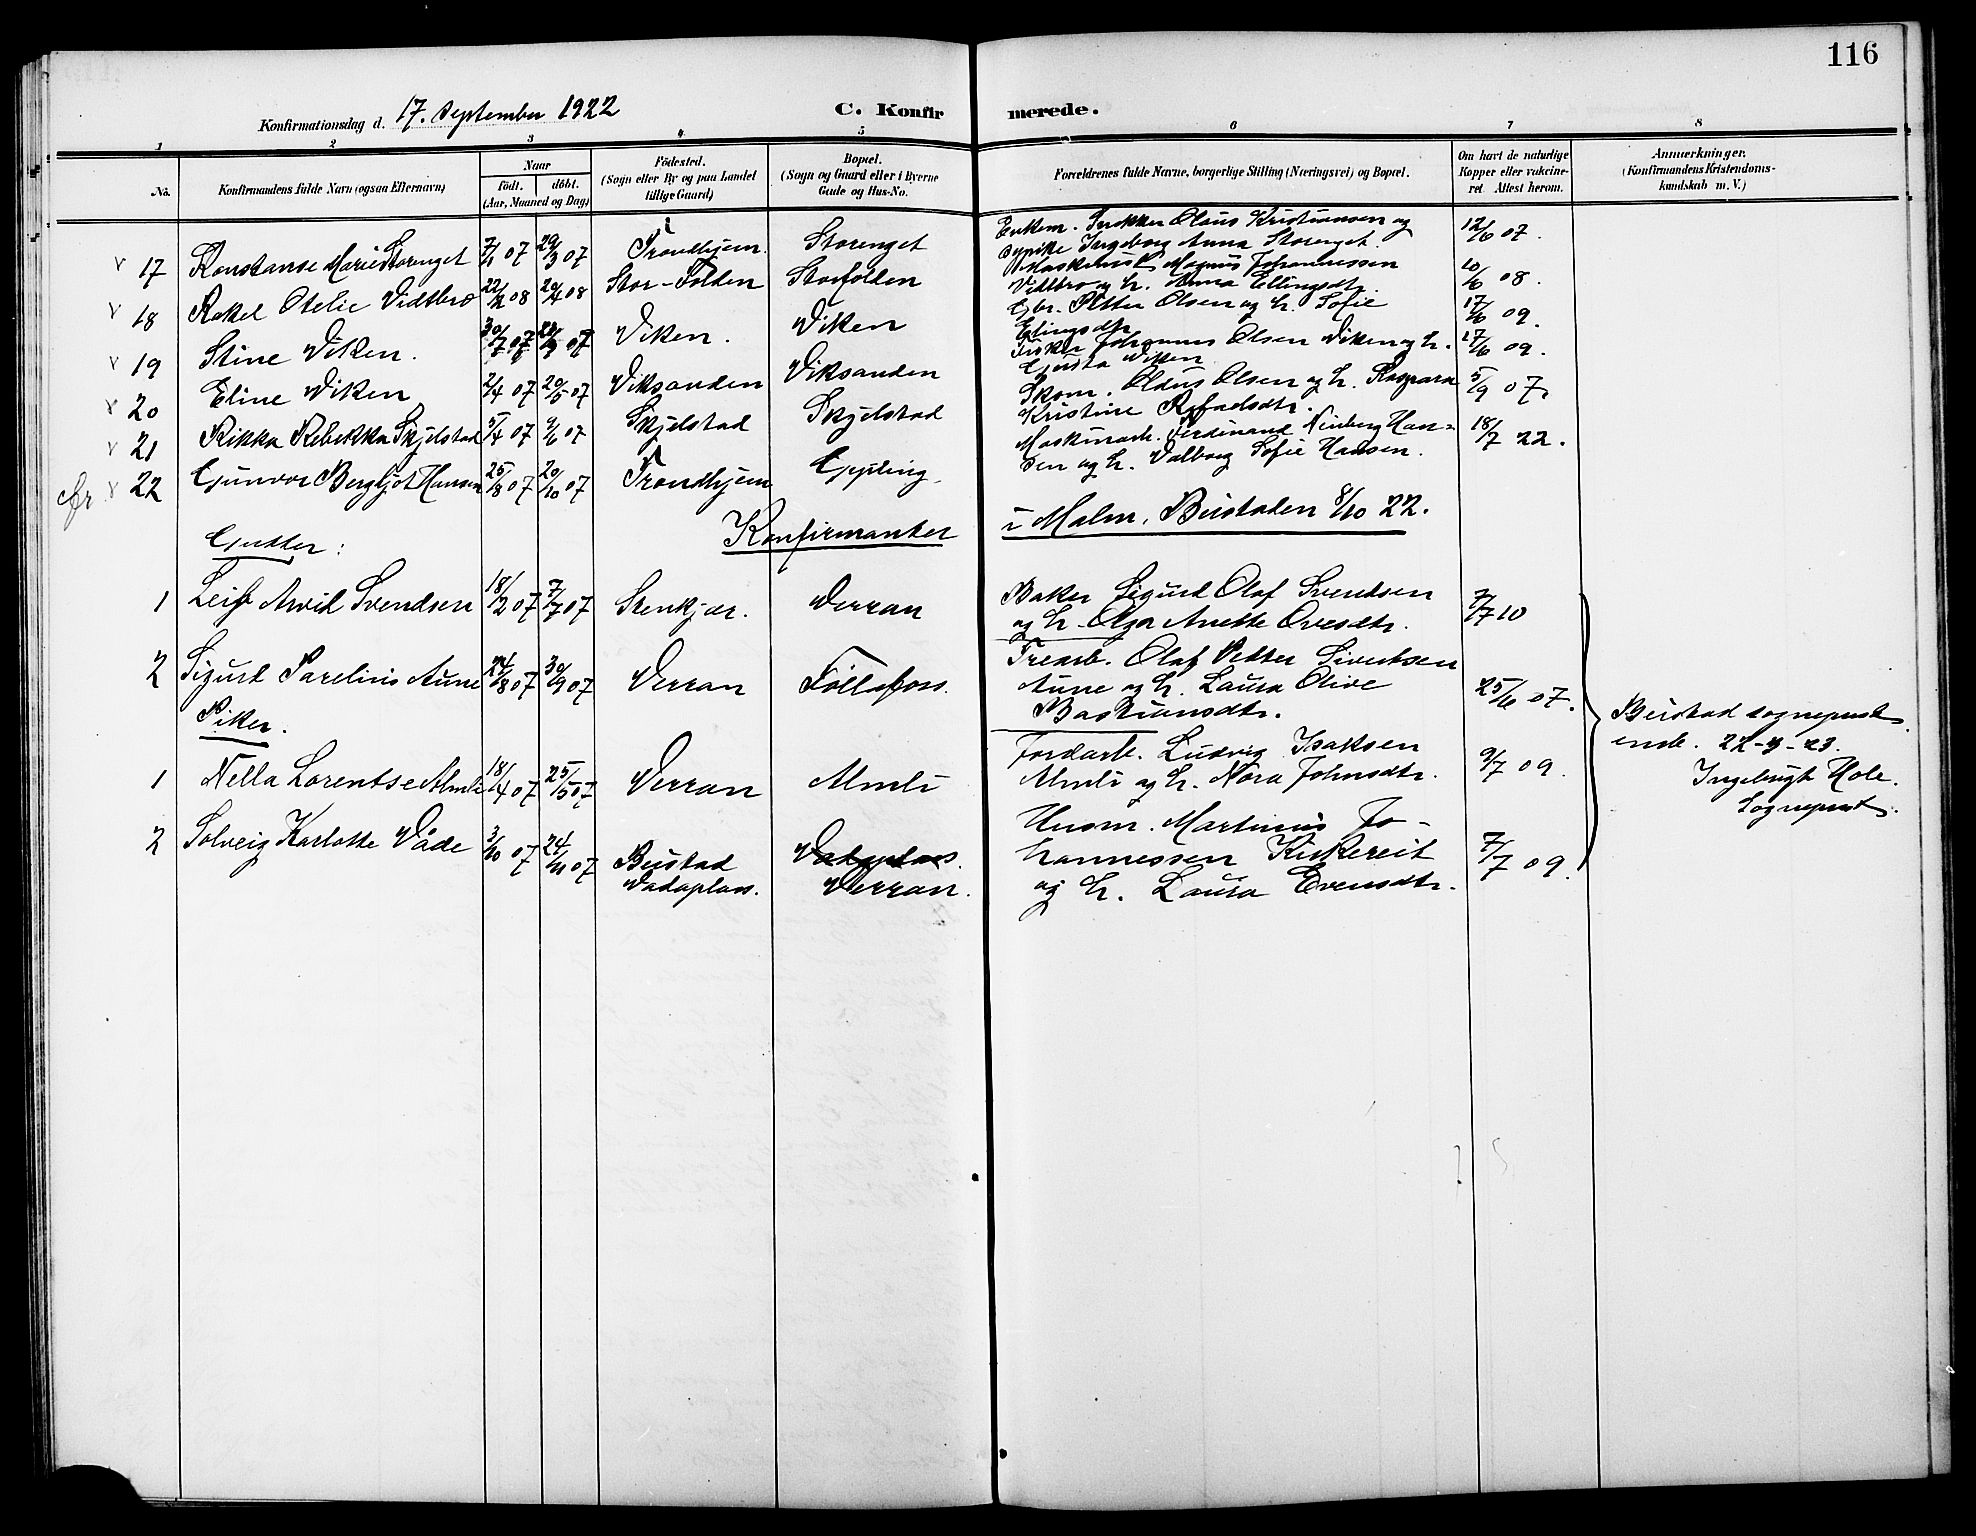 116
Konfirmationsdag d. 17. September 1922
C. Konfirmerede.
1 2 3 4 5 6 7 8
No.
Konfirmandens fulde Navn (ogsaa Efternavn)
Naar
født. døbt.
(Aar, Maaned og Dag)
Fødested.
(Sogn eller By og paa Landet
tillige Gaard)
Bopæl.
(Sogn og Gaard eller i Byerne
Gade og Hus-No.
Forældrenes fulde Navne, borgerlige Stilling (Næringsvei) og Bopæl.
Om havt de naturlige
Kopper eller vakcine-
ret. Attest herom.
Anmærkninger.
(Konfirmandens Kristendoms-
kundskab m. V.)
17 Konstanse Marie Storenget 7/11 07 29/3 07 Trondhjem. Storenget
Enkem. Snekker Olaus Kristiansen og
pike Ingeborg Anna Storenget 12/6 07.
18 Rakel Otelie Vidtbro 22/12 08 20/4 08 Stor-Folden Storfolden
Maskinist Magnus Johannessen
Vidtbro og h. Anna Ellingsdtr. 10/6 08.
19 Stine Viken. 30/7 07 07 Viken. Viken
Gbr. Petter Olsen og h. Sofie
Elingsdtr. 17/6 09.
20 Eline Viken 2/4 07 20/5 07 Viksanden Viksanden
Fisker Johannes Olsen Viken og h.
Gjusta Viken 17/6 09.
21 Rikka Rebekka Skjelstad 5/4 07 9/6 07 Skjelstad Skjelstad
Skom. Oldus Olsen og h. Kaspara
Kristine Rafaelsdtr. 5/9 07.
fr. 22 Gunvor Bergljot Hansen 25/8 07 20/10 07 Trondhjem Gjpling
Maskinarb. Ferdinand Ninberg Han-
sen og h. Valborg Sofie Hansen. 18/7 22.
Konfirmanter i Malm, Beistaden 8/10 22.
Gutter:
1 Leif Arvid Svendsen 18/2 07 7/7 07 Stenkjær. Verran
Baker Sigurd Olaf Svendsen
og h. Olga Anette Ovesdtr. 7/7 10
2 Sigurd Parelius Aune 24/8 07 30/9 07 Verran Follafoss.
Trearb. Olaf Petter Sivertsen
Aune og h. Laura Olive
Bastiansdtr. 25/6 07.
Piker.
1 Nella Lorentse Almli 18/4 07 25/5 07 Verran Almli
Jordarb. Ludvig Isaksen
Almli og h. Nora Johnsdtr. 9/7 09.
2 Solveig Karlotte Våde 3/10 07 24/11 07 Beistad Vadaplass.
Vadaplass. Verran.
Husm. Martinus Jo-
hannessen Kirkereit
og h. Laura Evensdtr. 7/7 09.
Beistad sogneprest
emb. 22-3-23.
Ingebrigt Hole.
Sogneprest.